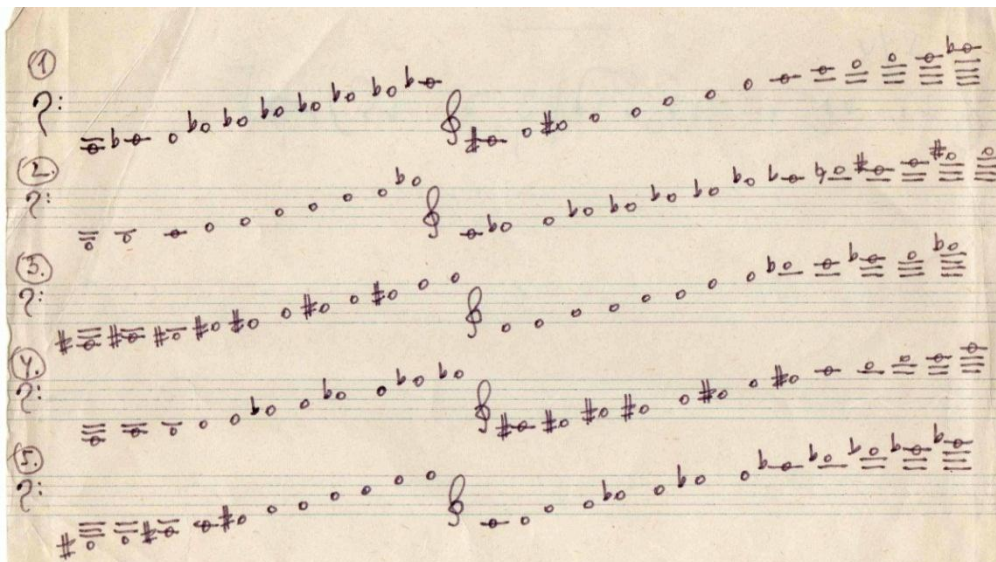 1
2.
3.
4.
5.